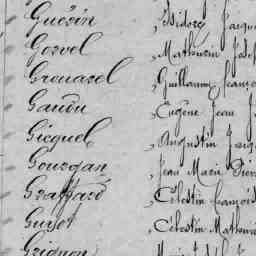 Guérin Isidore Jacques
Gorvel Mathurin Josep
Grouazel Guillaume franço
Gandu Eugène Jean
Gicquel Augustin
Gourdan Jean Marie Pier
Graffard Célestin françois
Guyot Célestin Mathuri
Grignon